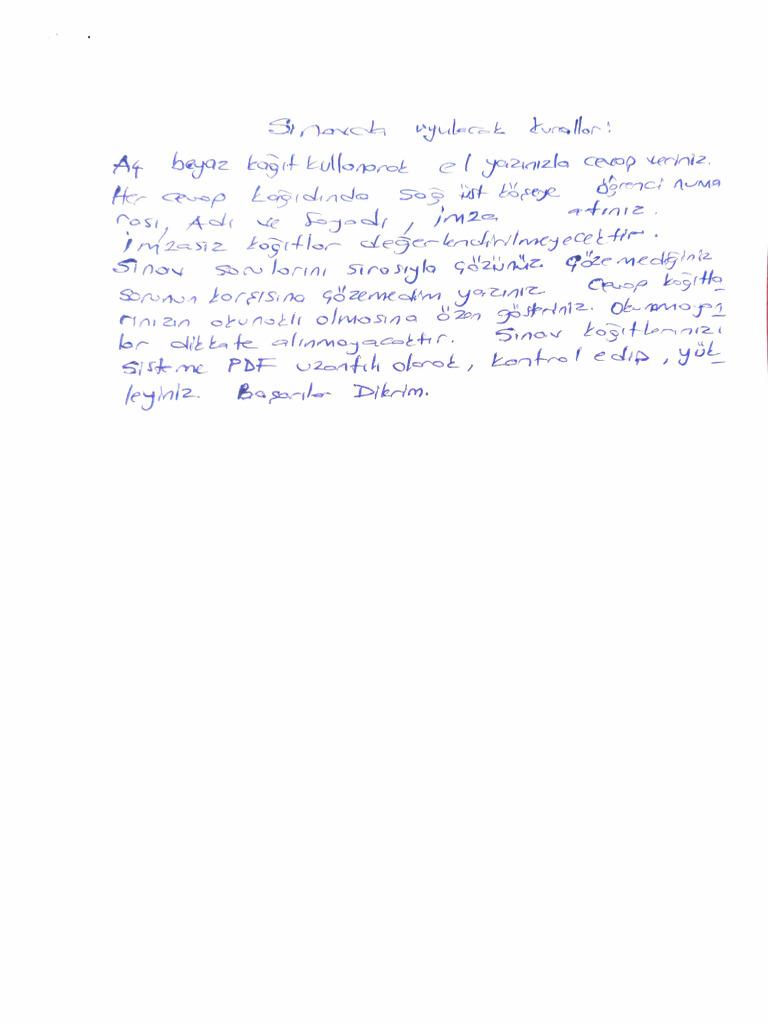 Sınavda uyulacak kurallar:
A4 beyaz kağıt kullanarak el yazınızla cevap veriniz.
Her cevap kağıdında sağ üst köşeye öğrenci numa
rası, Adı ve Soyadı, imza atınız.
İmzasız kağıtlar değerlendirilmeyecektir.
Sınav sorularını sırasıyla çözünüz. Çözemediğiniz
sorunun karşısına çözemedim yazınız. Cevap kağıtla
rınızın okunaklı olmasına özen gösteriniz. Okunmayan
lar dikkate alınmayacaktır. Sınav kağıtlarınızı
sisteme PDF uzantılı olarak, kontrol edip, yük
leyiniz. Başarılar Dilerim.